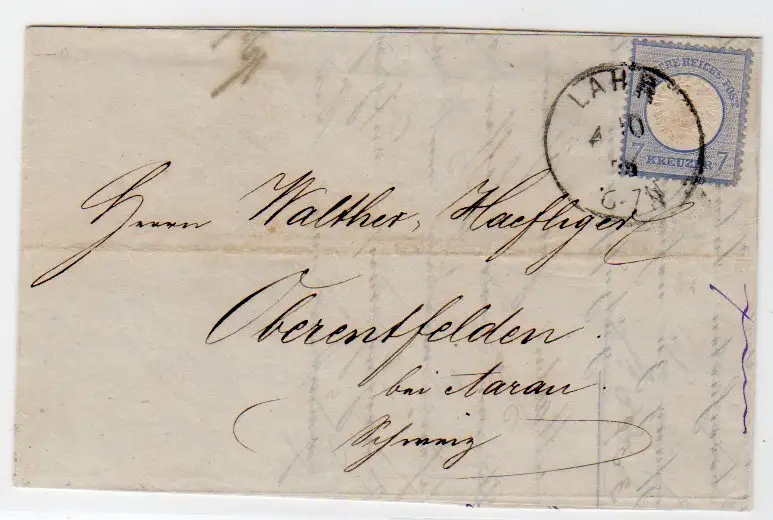 DEUTSCHE REICHS-POST
7 KREUZER 7
LAHR
4 10
6-7N
Herrn Walther Haefliger
Oberentfelden.
bei Aarau.
Schweiz